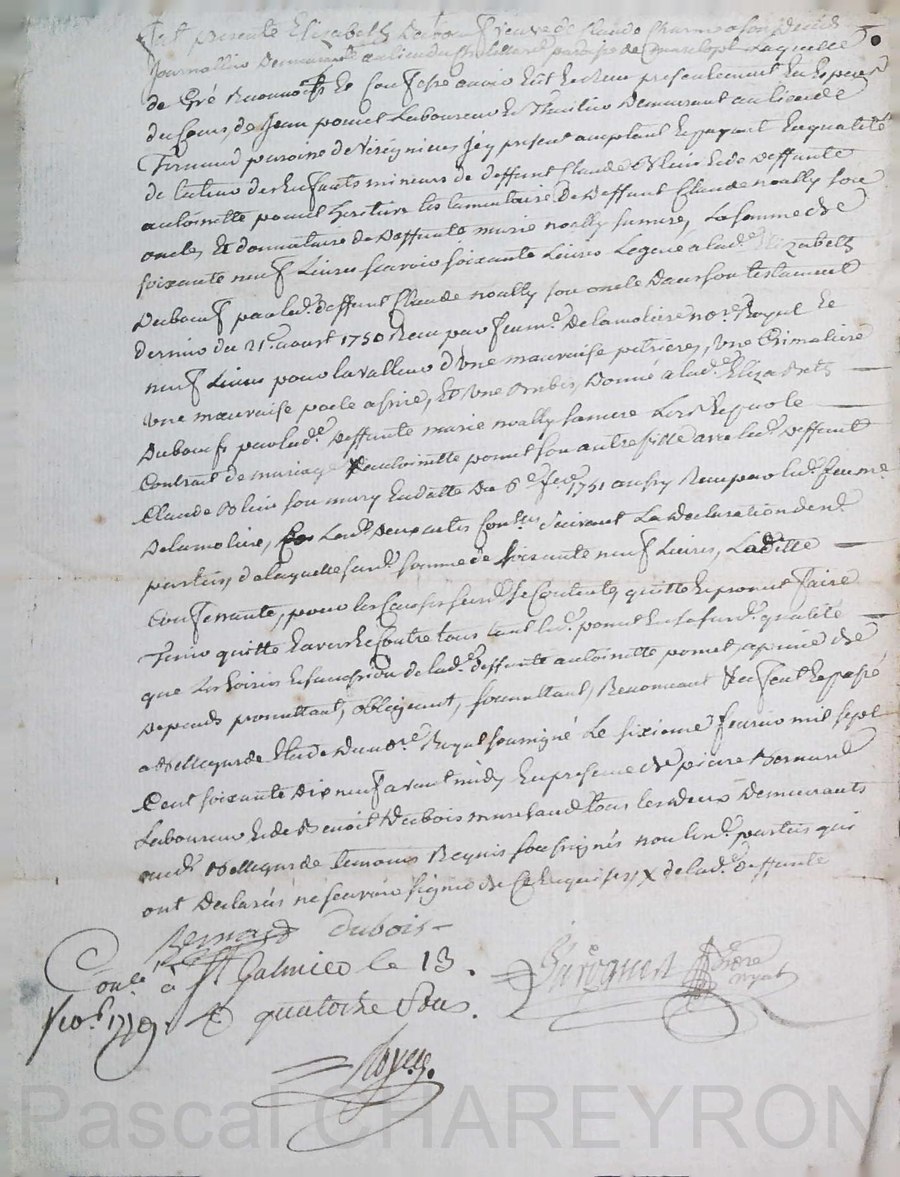 fut presente Elizabeth Duboeuf veuve de Claude
journallier demeurante au lieu du parroisse de laquelle
de Gré Reconnoit et Confesse avoir Eut et Receu presentement En Especes
du Cours, de Jean pomet Laboureur et Thuilier Demeurant au lieu de
parroisse de Veregnieux jcy present acceptant Et payant En qualité
de tuteur des Enfants mineurs de deffunt Claude Blein Et de deffunte
antoinette pomet heritiere testamentaire De deffunt Claude noally son
oncle, Et donnataire de Deffunte marie noally sa mere, La somme de
soixante neuf Livres scavoir soixante Livres Legué a lade. Elizabeth
Duboeuf par led. deffunt Claude noally son oncle Dans son testament
dernier du 21e. aoust 1750 Receu par feu me. Delamoliere nore. Royal Et
neuf Livres pour la valleur d'Une mauvaise petriere, Une Crimaliere
Une mauvaise poele a frire, Et Une Brebis, Donné a lade. Elizabeth
Duboeuf par lade. deffunte marie noally sa mere Lors Et par le
Contrat de mariage X d'antoinette pomet son autre fille avec led. deffunt
Claude Blein son mary En datte du 6e. fer. 1751 aussy Receu par led. feu me.
Delamoliere, Lesd. deux actes Conts. suivant La declaration desd.
parties, de laquelle surde. somme de soixante neuf Livres, Laditte
Confessante, pour les Causes susd. se Contente, quitte Et promet faire
tenir quitte Envers Et Contre tous tant led. pomet En sa surde. qualité
que Les hoirs Et succession de lade. deffunte antoinette pomet, a peine de
depends promettant, obligeant, soumettant, Renonceant fait Et passé
a Bellegarde Etude du nore. Royal soussigné Le sixieme fevrier mil sept
Cent soixante dix neuf avant midy En presence de pierre Bernard
Laboureur Et de Benoit Dubois marchand tous les deux Demeurants
aud. Bellegarde temoins Requis soussignés non lesd. parties qui
ont Declarés ne scavoir signer de Ce Enquises X de lade. deffunte
Bernard Dubois
Conle. à St Galmier le 13.
1779 quatorze Sous.
nore royal